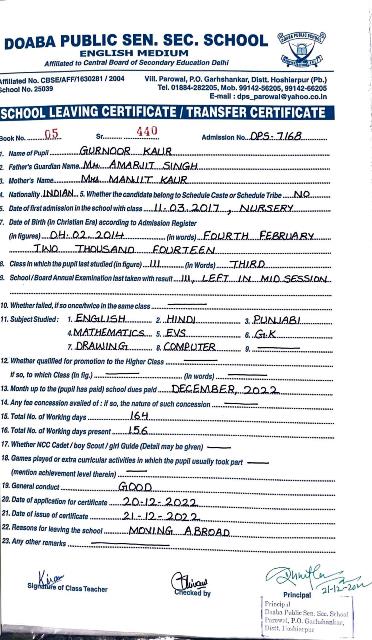 DOABA PUBLIC SEN. SEC. SCHOOL
ENGLISH MEDIUM
Affiliated to Central Board of Secondary Education Delhi
Affiliated No. CBSE/AFF/1630281 / 2004
School No. 25039
Vill. Parowal, P.O. Garhshankar, Distt. Hoshierpur (Pb.)
Tel. 01884-282205, Mob. 99142-56205, 99142-66205
E-mail : dps_parowal@yahoo.co.in
SCHOOL LEAVING CERTIFICATE / TRANSFER CERTIFICATE
Book No. 05 Sr. 440 Admission No. DPS-7168
1. Name of Pupil GURNOOR KAUR
2. Father's/Guardian Name Mr. AMARJIT SINGH
3. Mother's Name Mrs. MANJIT KAUR
4. Nationality INDIAN 5. Whether the candidate belong to Schedule Caste or Schedule Tribe NO
6. Date of first admission in the school with class 11.03.2017, NURSERY
7. Date of Birth (in Christian Era) according to Admission Register
(in figures) 04.02.2014 (in words) FOURTH FEBRUARY
TWO THOUSAND FOURTEEN
8. Class in which the pupil last studied (in figure) III (in Words) THIRD
9. School / Board Annual Examination last taken with result III, LEFT IN MID SESSION
10. Whether failed, if so once/twice in the same class
11. Subject Studied : 1. ENGLISH 2. HINDI 3. PUNJABI
4. MATHEMATICS 5. EVS 6. G.K
7. DRAWING 8. COMPUTER 9.
12. Whether qualified for promotion to the Higher Class
If so, to which Class (in fig.) (in words)
13. Month up to the (pupil has paid) school dues paid DECEMBER, 2022
14. Any fee concession availed of : if so, the nature of such concession
15. Total No. of Working days 164
16. Total No. of Working days present 156
17. Whether NCC Cadet / boy Scout / girl Guide (Detail may be given)
18. Games played or extra curricular activities in which the pupil usually took part
(mention achievement level therein)
19. General conduct GOOD
20. Date of application for certificate 20-12-2022
21. Date of issue of certificate 21-12-2022
22. Reasons for leaving the school MOVING ABROAD
23. Any other remarks
Kiran
Signature of Class Teacher
Checked by
21-12-2022
Principal
Principal
Doaba Public Sen. Sec. School
Parowal, P.O. Garhshankar,
Distt. Hoshiarpur